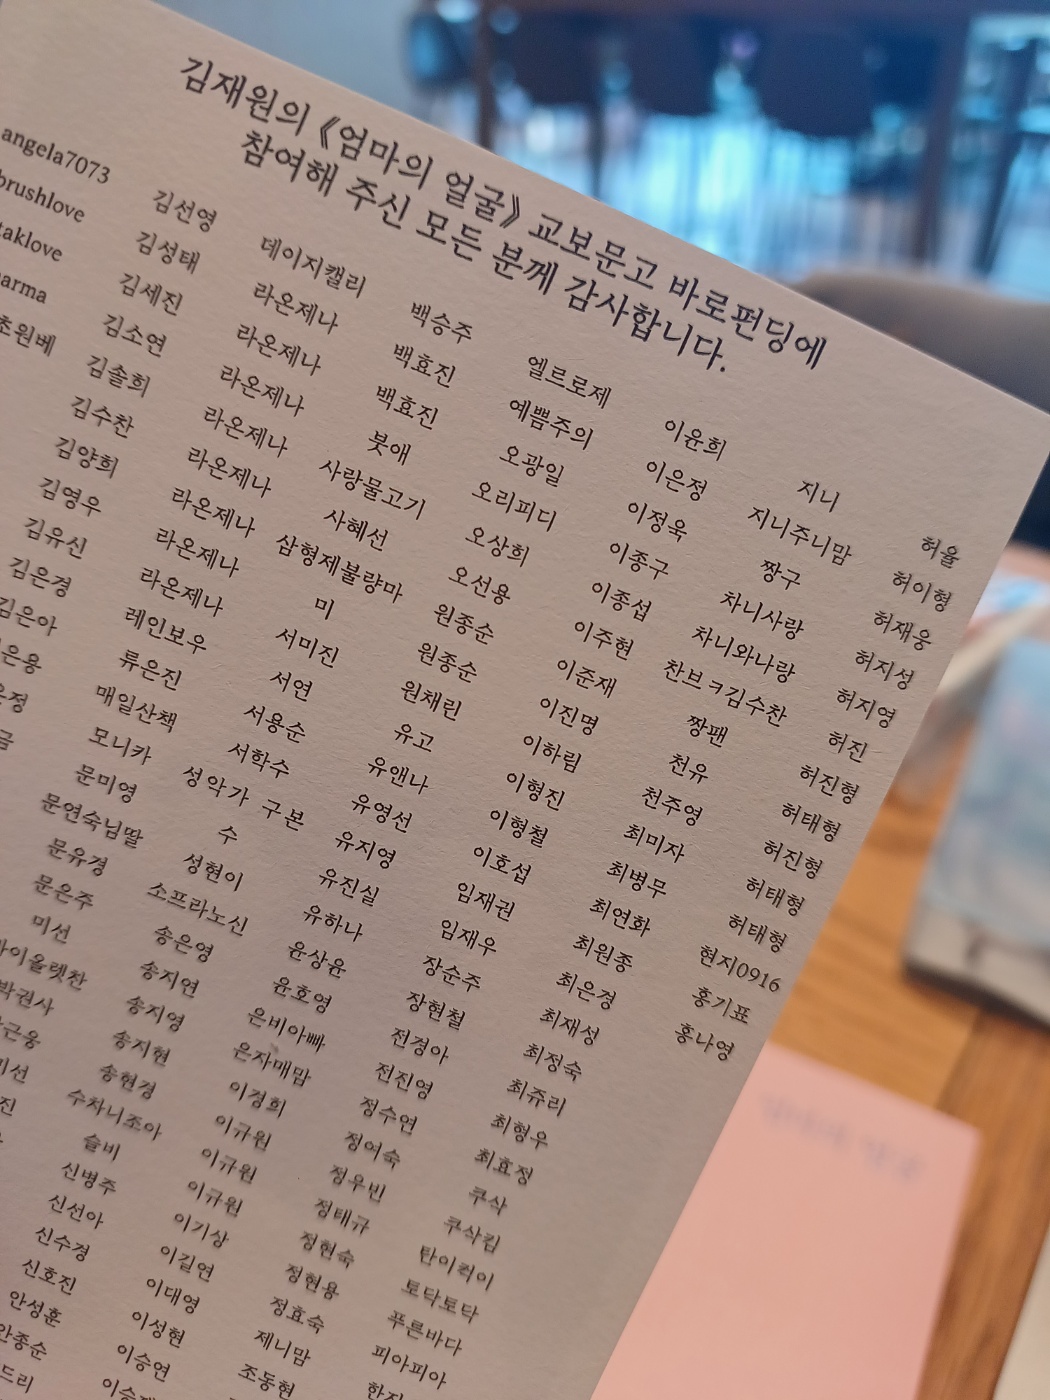 김재원의 《엄마의 얼굴》 교보문고 바로펀딩에
참여해 주신 모든 분께 감사합니다.
angela7073
brushlove
김선영
김성태
김세진
김소연
김솔희
김수찬
김양희
김영우
김유신
김은경
김은아
데이지캘리
라온제나
라온제나
라온제나
라온제나
라온제나
라온제나
라온제나
라온제나
레인보우
류은진
매일산책
모니카
문미영
문연숙님딸
문유경
문은주
미선
백승주
백효진
백효진
붓애
사랑물고기
사혜선
삼형제불량마
미
서미진
서연
서용순
서학수
성악가 구본
수
성현이
소프라노신
송은영
송지연
송지영
송지현
송현경
수차니조아
슬비
신병주
신선아
신수경
신호진
안성훈
안종순
엘르로제
예쁨주의
오광일
오리피디
오상희
오선용
원종순
원종순
원채린
유고
유앤나
유영선
유지영
유진실
유하나
윤상윤
윤호영
은비아빠
은자매맘
이경희
이규원
이규원
이규원
이기상
이길연
이대영
이성현
이승연
이윤희
이은정
이정욱
이종구
이종섭
이주현
이준재
이진명
이하림
이형진
이형철
이호섭
임재권
임재우
장순주
장현철
전경아
전진영
정수연
정어숙
정우빈
정태규
정현숙
정현용
정효숙
제니맘
조동현
지니
지니주니맘
짱구
차니사랑
차니와나랑
찬브ㅋ김수찬
짱팬
천유
천주영
최미자
최병무
최연화
최원종
최은경
최재성
최정숙
최쥬리
최형우
최효정
쿠삭
쿠삭킴
탄이럭이
토닥토닥
푸른바다
피아피아
허율
허이형
허재웅
허지성
허지영
허진
허진형
허태형
허진형
허태형
허태형
현지0916
홍기표
홍나영